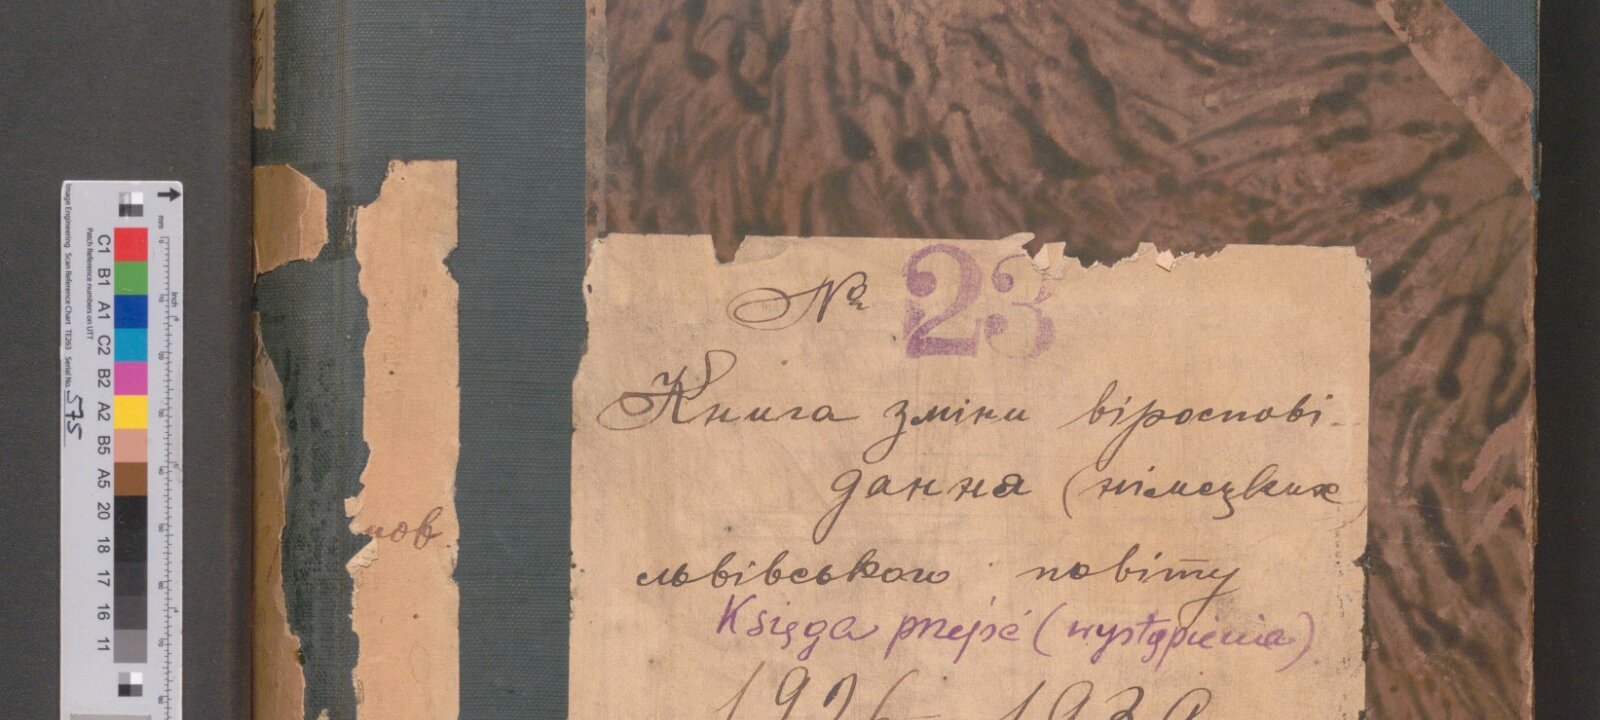 № 23
Книга зміни віроспові-
дання (німецьких)
львівського повіту
Księga przejść (wystąpienia)
пов
Image Engineering Scan Reference Chart TE263 Serial No. 575
Patch Reference numbers on UTT
C1 B1 A1 C2 B2 A2 B5 A5 20 18 17 16 11
mm
inch